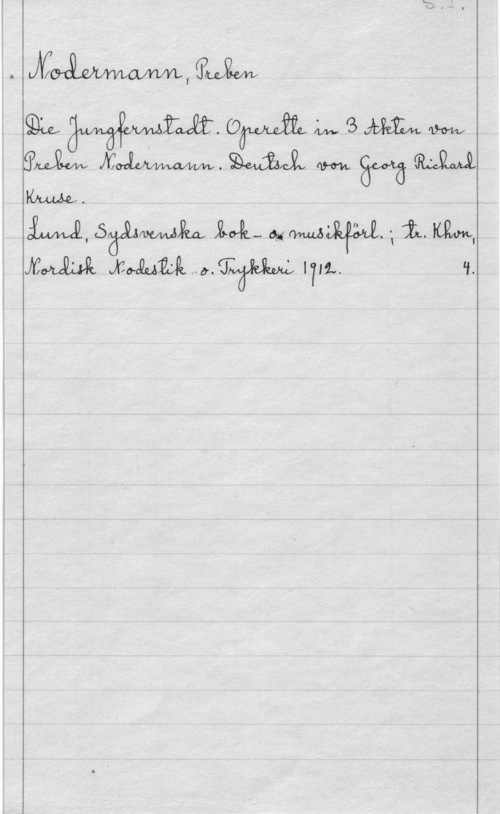 Nodermann, Preben
Die Jungfernstadt. Operette in 3 Akten von
Preben Nodermann. Deutsch von Georg Richard
Kruse.
Lund, Sydsvenska bok- o. musikförl.; tr. Khvn,
Nordisk Nodestik o. Trykkeri 1912. 4.